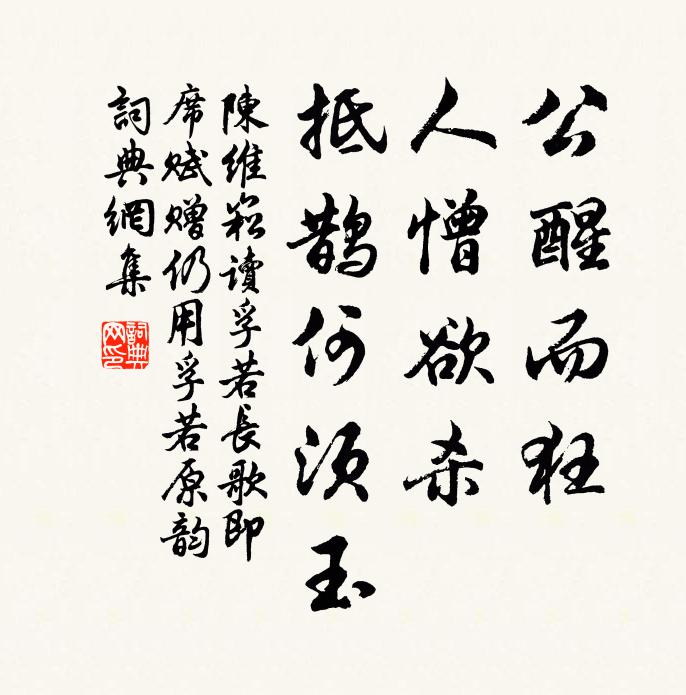 公醒而狂
人憎欲杀
抵鹊何须玉
陳維崧讀孚若長歌即
席赋赠仍用孚若原韵
詞典網集
詞典
网印